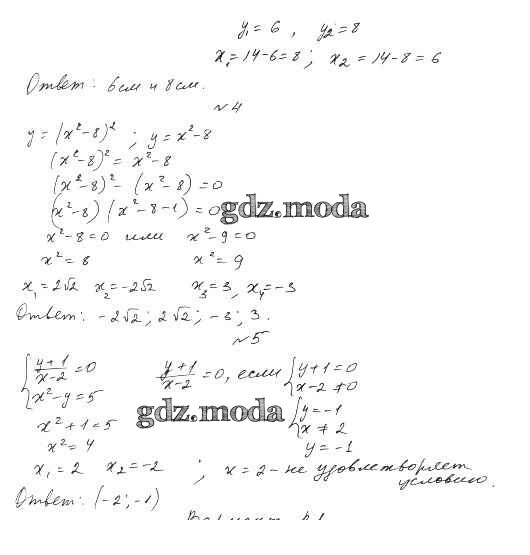 y₁ = 6 , y₂ = 8
x₁ = 14-6 = 8 ; x₂ = 14-8 = 6
Ответ: 6 см и 8 см.
№ 4
y = (x²-8)² ; y = x²-8
(x²-8)² = x²-8
(x²-8)² - (x²-8) = 0
(x²-8) (x²-8-1) = 0
gdz.moda
x²-8=0 или x²-9=0
x² = 8 x² = 9
x₁ = 2√2 x₂ = -2√2 x₃ = 3, x₄ = -3
Ответ: -2√2 ; 2√2 ; -3 ; 3.
№ 5
{ (y+1)/(x-2) = 0 (y+1)/(x-2) = 0, если { y+1 = 0
x²-y = 5 x-2 ≠ 0
gdz.moda
x²+1 = 5 { y = -1
x² = 4 x ≠ 2
y = -1
x₁ = 2 x₂ = -2 ; x = 2 - не удовлетворяет
условию.
Ответ: (-2; -1)